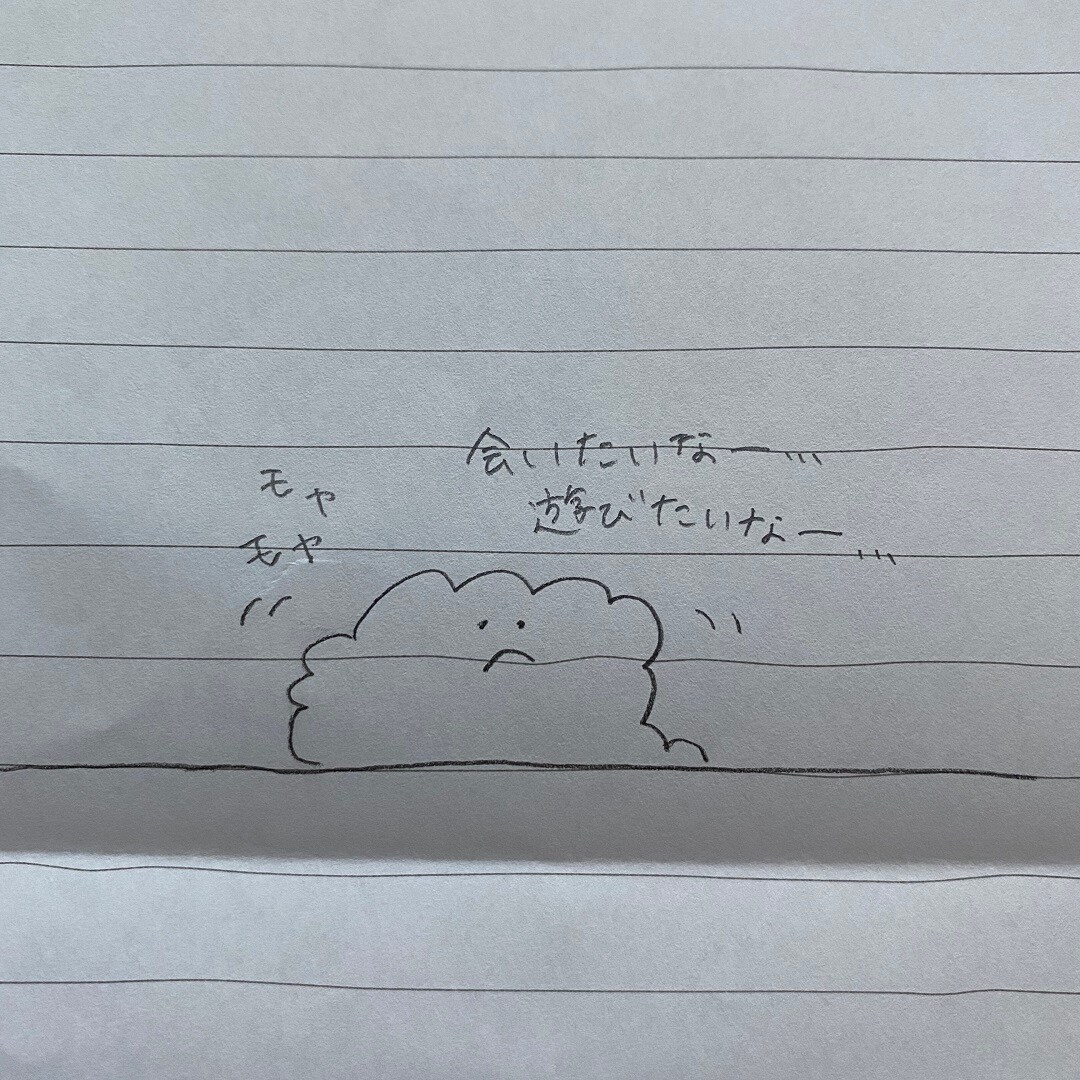 会いたいなー...
遊びたいなー...
モヤ
モヤ